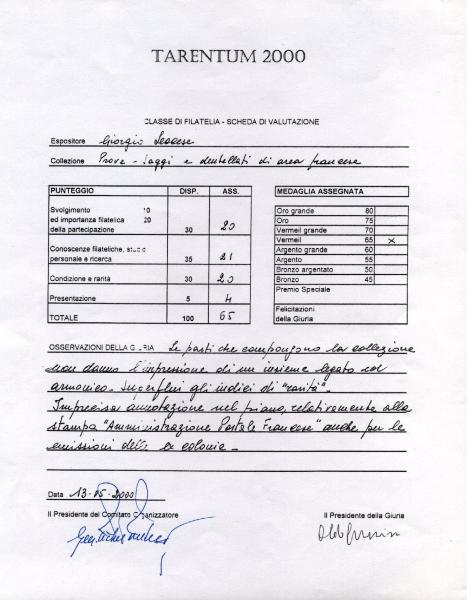 TARENTUM 2000
CLASSE DI FILATELIA - SCHEDA DI VALUTAZIONE
Espositore Giorgio
Collezione Prove - Saggi e dentellati di area francese
PUNTEGGIO DISP. ASS.
Svolgimento 10
ed importanza filatelica 20
della partecipazione 30 20
Conoscenze filateliche, studio
personale e ricerca 35 21
Condizione e rarità 30 20
Presentazione 5 4
TOTALE 100 65
MEDAGLIA ASSEGNATA
Oro grande 80
Oro 75
Vermeil grande 70
Vermeil 65 X
Argento grande 60
Argento 55
Bronzo argentato 50
Bronzo 45
Premio Speciale
Felicitazioni
della Giuria
OSSERVAZIONI DELLA GIURIA Le parti che compongono la collezione
non danno l'impressione di un insieme legato ed
armonico. Superflui gli indici di "rarità".
Imprecisa annotazione nel piano, relativamente alla
stampa "Amministrazione Postale Francese" anche per le
emissioni delle ex colonie -
Data 13-05-2000
Il Presidente del Comitato Organizzatore
Il Presidente della Giuria